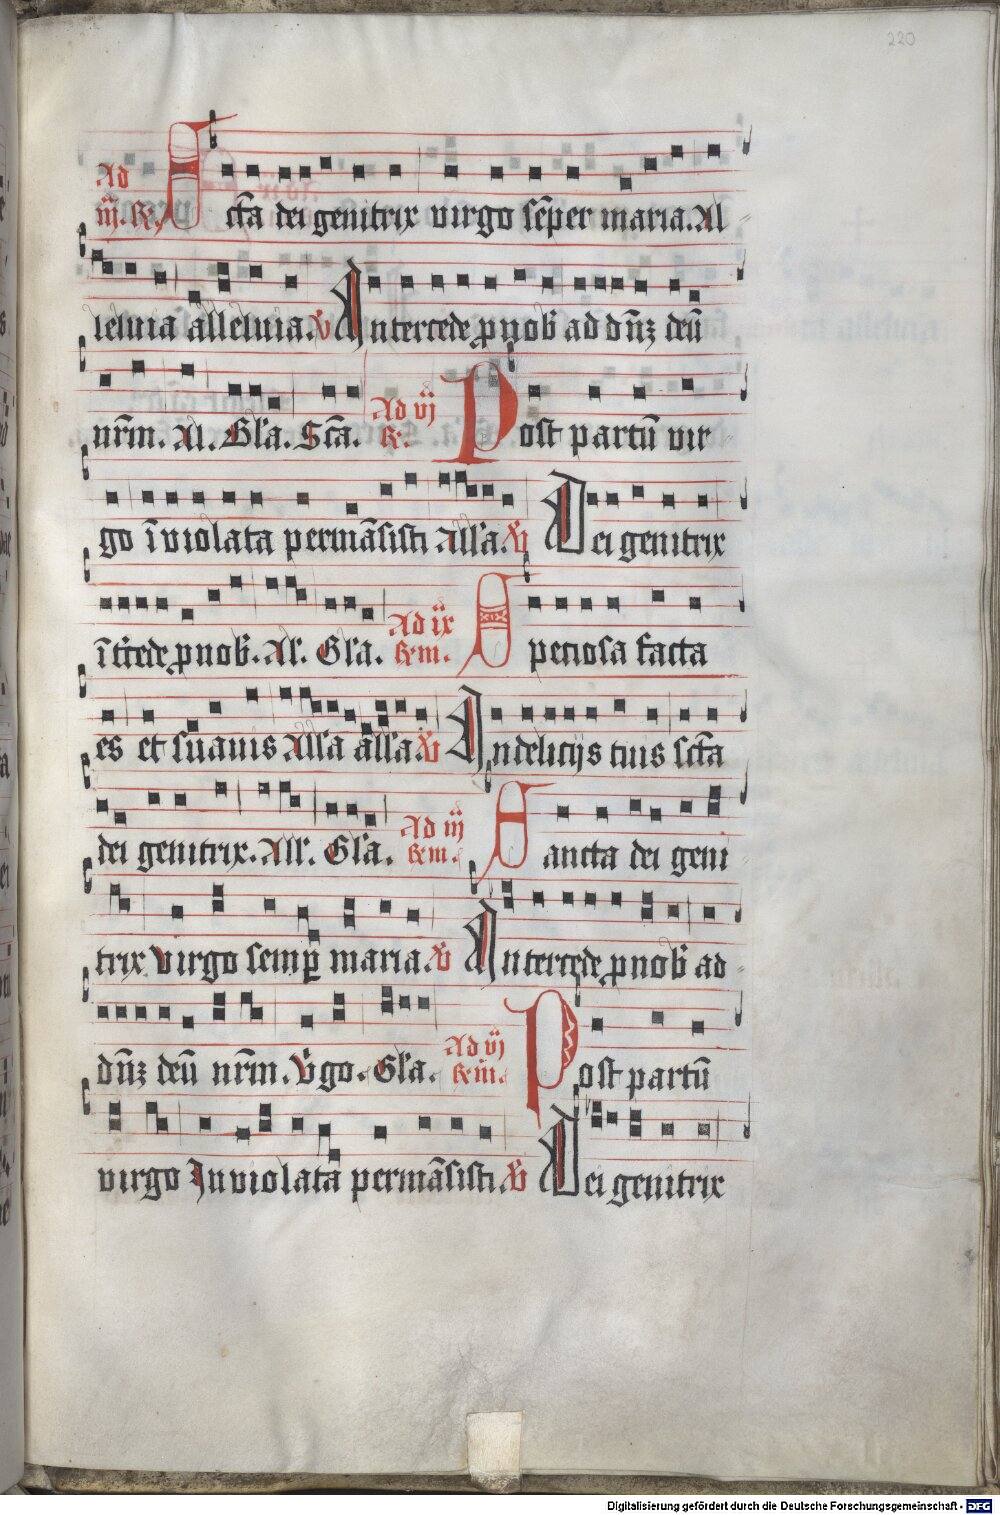 220
Ad
iij. R. Scta dei genitrix virgo semper maria. Al
leluia alleluia. V Intercede p nob ad dnz deu
nrm. Al. Gla. Scta. Ad vj R. Post partu vir
go inviolata permasisti Alla. V Dei genitrix
itcede p nob. Al. Gla. Ad ix Rm. Speciosa facta
es et suauis Alla alla. V In delicijs tuis scta
dei genitrix. All. Gla. Ad iij Rm. Sancta dei geni
trix virgo semp maria. V Intercede p nob ad
dnz deu nrm. Vgo. Gla. Ad vj Rm. Post partu
virgo Inviolata permasisti. V Dei genitrix
Digitalisierung gefördert durch die Deutsche Forschungsgemeinschaft - DFG